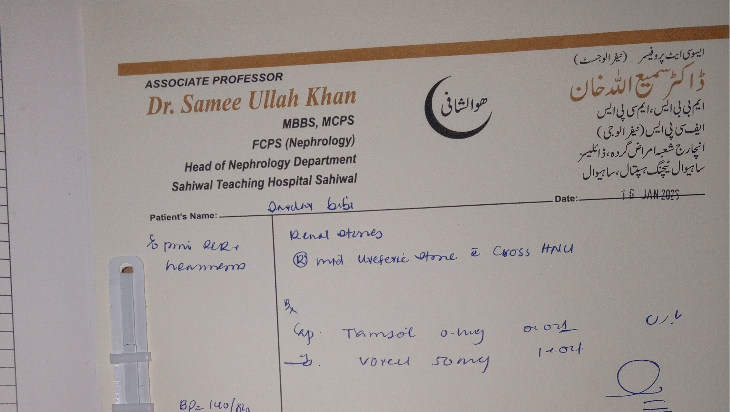 ASSOCIATE PROFESSOR
Dr. Samee Ullah Khan
MBBS, MCPS
FCPS (Nephrology)
Head of Nephrology Department
Sahiwal Teaching Hospital Sahiwal
ھوالشافی
ایسوسی ایٹ پروفیسر (نیفرالوجسٹ)
ڈاکٹر سمیع اللہ خان
ایم بی بی ایس، ایم سی پی ایس
ایف سی پی ایس (نیفرالوجی)
انچارج شعبہ امراض گردہ، ڈائلیسز
ساہیوال ٹیچنگ ہسپتال، ساہیوال
Patient's Name: bibi
Date: 16 JAN 2025
Renal stones
(R) mid Ureteric stone c̄ Gross HNU
Rx
Cap. Tamsol 0.4mg
Voren 50mg
BP= 140/80